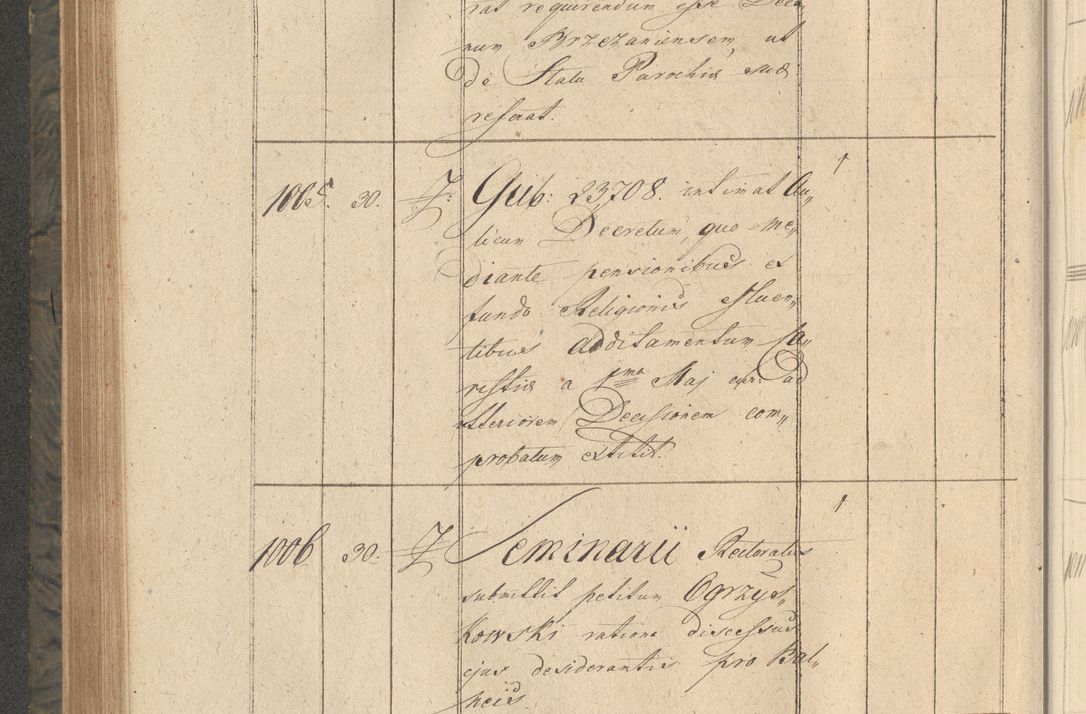 rat requirendum esse Deca
num Brzezaniensem, ut
de Statu Parochiæ suæ
referat.
1005. 30. Gub: 23708. intimat Au„
licum Decretum, quo me„
diante pensionibus e
fundo Religionis efluen„
tibus additamentum
a 1ma Maj ad
ulteriorem Decisionem com„
probatum extitit.
1006 30. Seminarii Rectoratus
submittit petitum Ogrzys„
kowski ratione discessus
ejus desiderantis pro Bal„
neis.